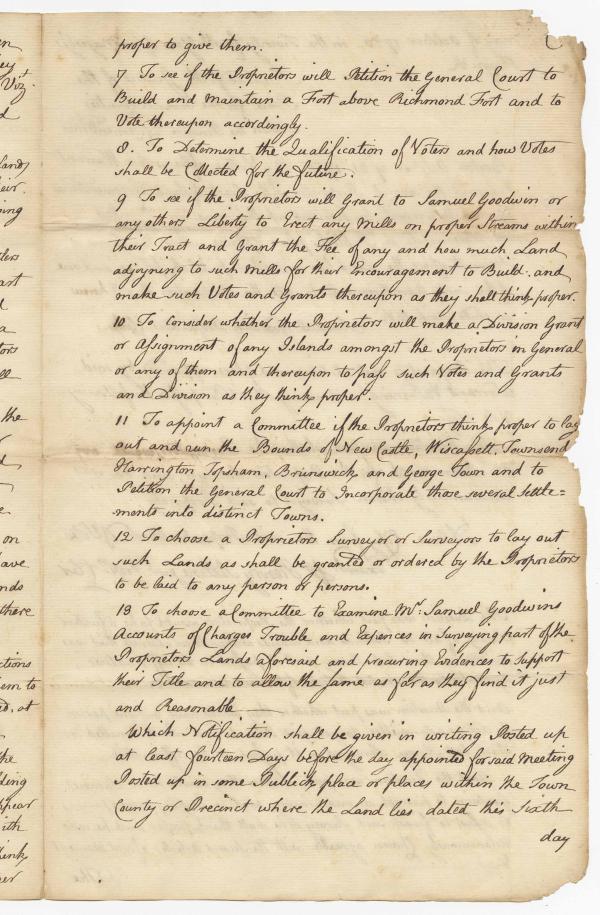 proper to give them.
7 To see if the Proprietors will Petition the General Court to
Build and maintain a Fort above Richmond Fort and to
Vote thereupon accordingly.
8. To Determine the Qualification of Voters and how Votes
shall be Collected for the future.
9 To see if the Proprietors will Grant to Samuel Goodwin or
any others Liberty to Erect any Mills on proper Streams within
their Tract and Grant the Fee of any and how much Land
adjoyning to such Mills for their Encouragement to Build. and
make such Votes and Grants thereupon as they shall think proper.
10 To consider whether the Proprietors will make a Division Grant
or Assignment of any Islands amongst the Proprietors in General
or any of them and thereupon to pass such Votes and Grants
and Division as they think proper.
11 To appoint a Committee if the Proprietors think proper to lay
out and run the Bounds of New Castle, Wiscassett, Townsend
Harrington Topsham, Brunswick and George Town and to
Petition the General Court to Incorporate those several Settle=
ments into distinct Towns.
12 To choose a Proprietors Surveyor or Surveyors to lay out
such Lands as shall be granted or ordered by the Proprietors
to be laid to any person or persons.
13 To choose a Committee to Examine Mr. Samuel Goodwins
Accounts of Charges Trouble and Expences in Surveying part of the
Proprietors Lands aforesaid and procuring Evidences to support
their Title and to allow the same as far as they find it just
and Reasonable
Which Notification shall be given in writing Posted up
at least fourteen Days before the day appointed for said Meeting
Posted up in some Publick place or places within the Town
County or Precinct where the Land lies dated this Sixth
day